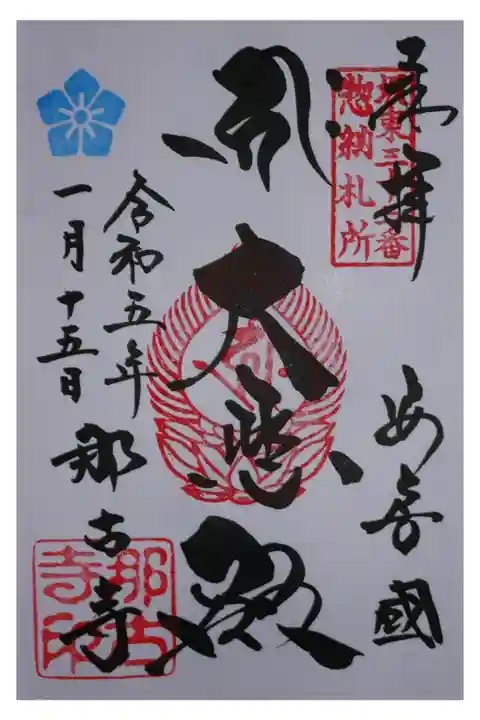 奉拝
坂東三十三番
惣納札所
安房國
大悲殿
令和五年
一月十五日
那古寺
那古
寺印